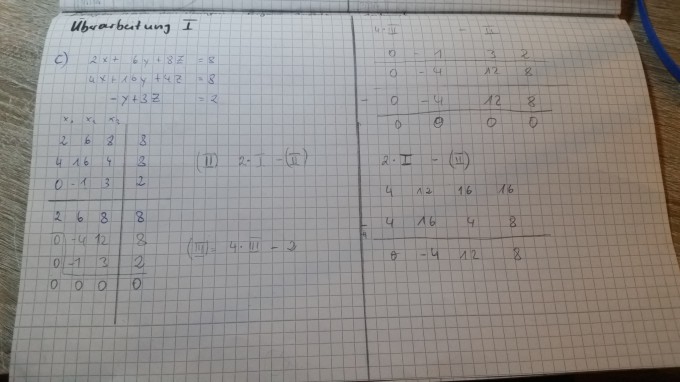 Überarbeitung I
c) 2x + 6y + 8z = 8
4x + 16y + 4z = 8
-y + 3z = 2
x₁ x₂ x₃
2 6 8 8
4 16 4 8
0 -1 3 2
(II) 2·I - (II)
2 6 8 8
0 -4 12 8
0 -1 3 2
0 0 0 0
(III) = 4·III -
4·III - II
0 -1 3 2
0 -4 12 8
- 0 -4 12 8
0 0 0 0
2·I - (II)
4 12 16 16
- 4 16 4 8
0 -4 12 8